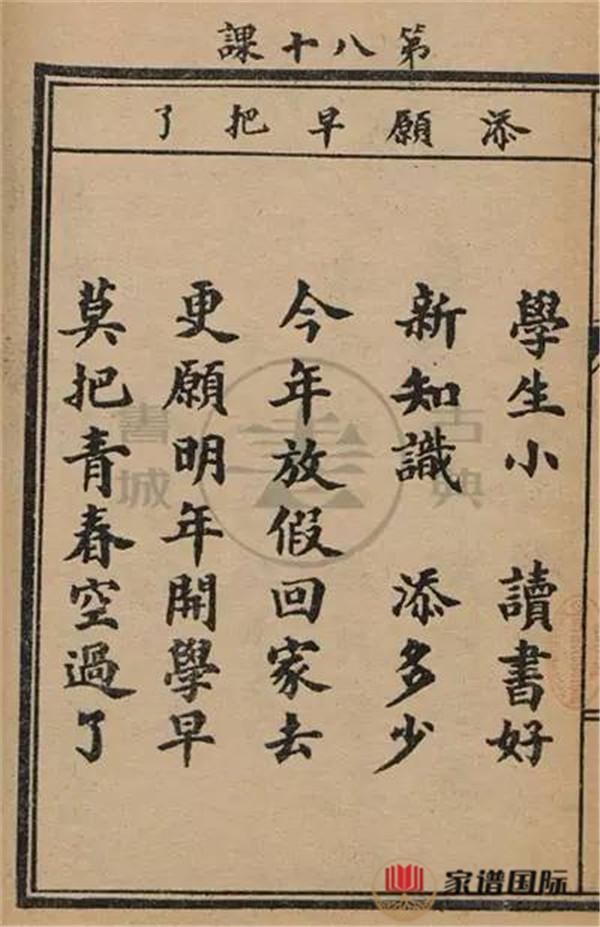 第八十課
添願早把了
學生小 讀書好
新知識 添多少
今年放假回家去
更願明年開學早
莫把青春空過了
古典書城
家谱国际